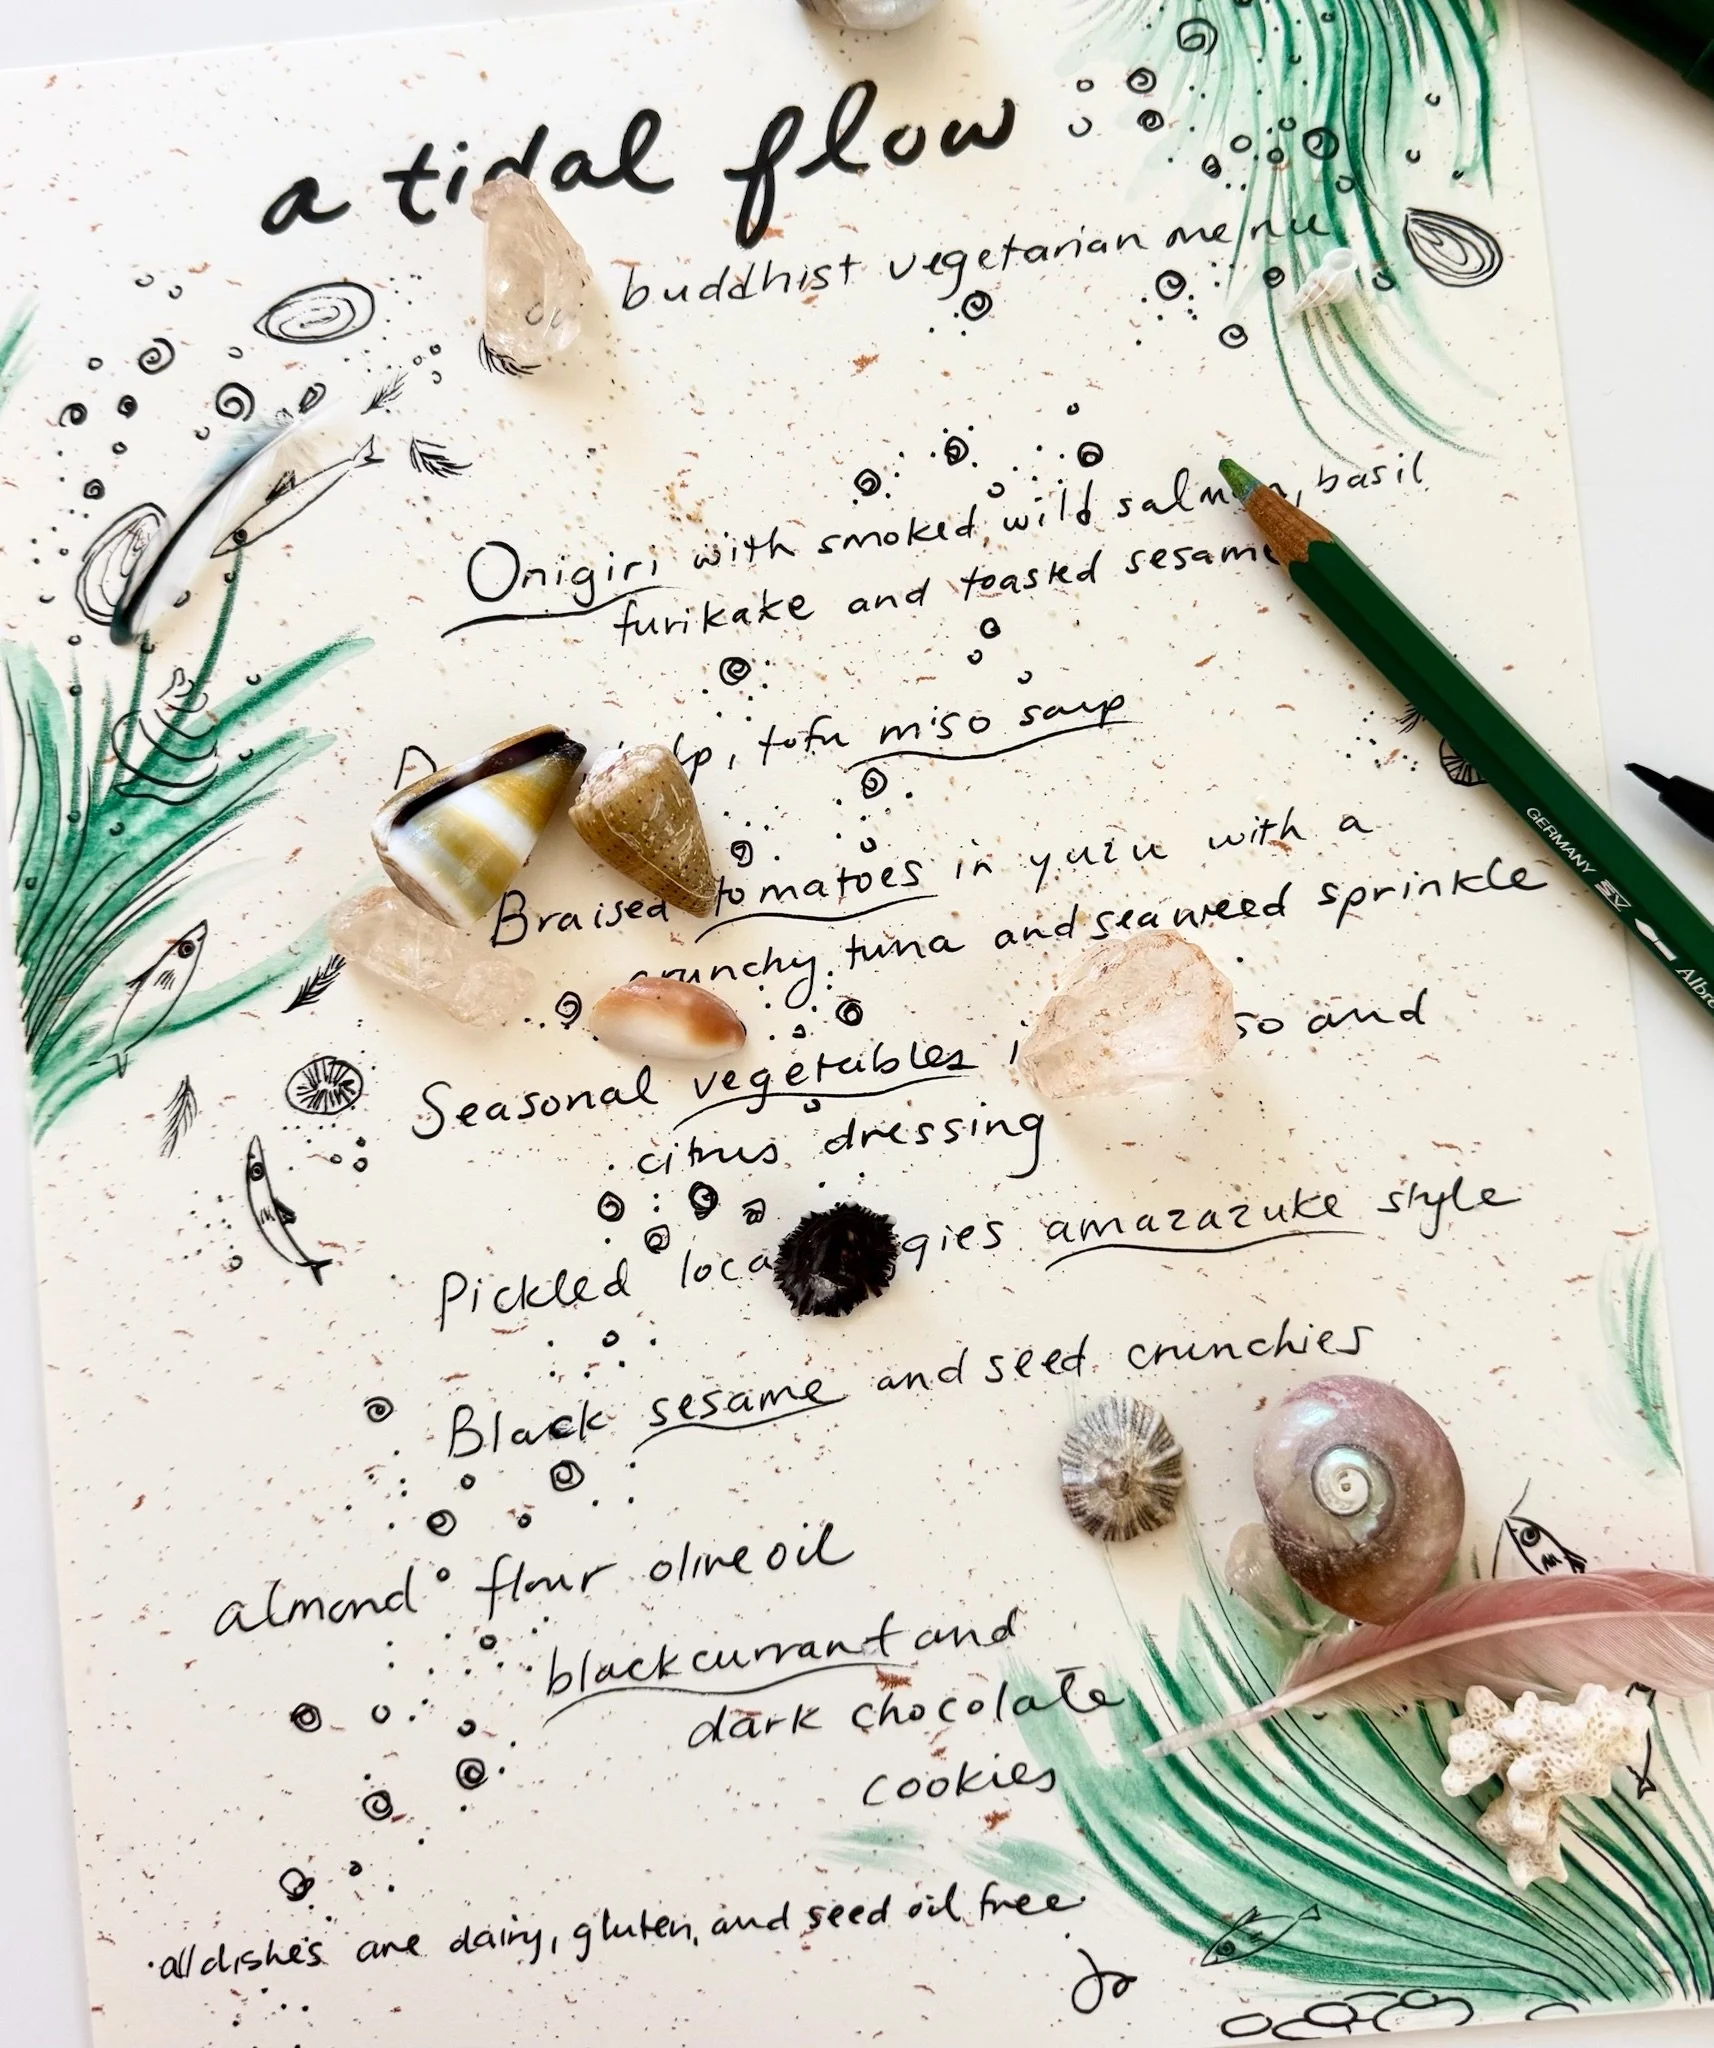 a tidal flow
buddhist vegetarian menu
Onigiri with smoked wild salmon, basil
furikake and toasted sesame
tofu miso soup
Braised tomatoes in yuzu with a
crunchy tuna and seaweed sprinkle
Seasonal vegetables and
citrus dressing
Pickled amazazuke style
Black sesame and seed crunchies
almond flour olive oil
blackcurrant and
dark chocolate
cookies
all dishes are dairy, gluten, and seed oil free
GERMANY